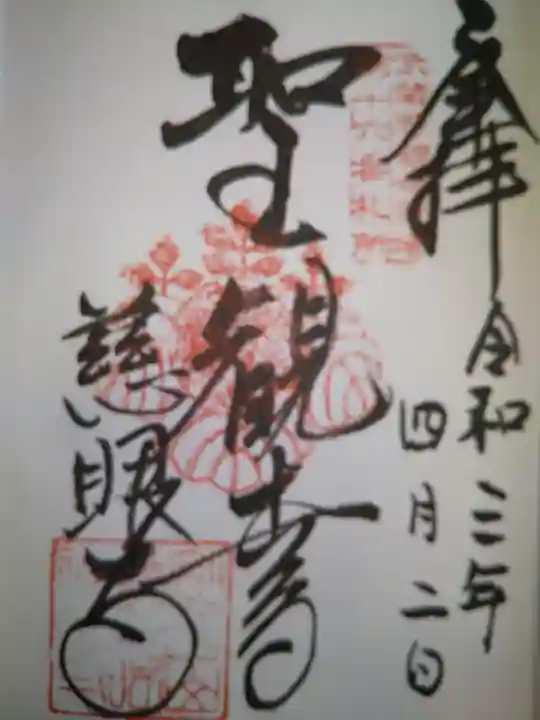 奉拝
令和三年
四月二日
聖観世音
慈眼寺